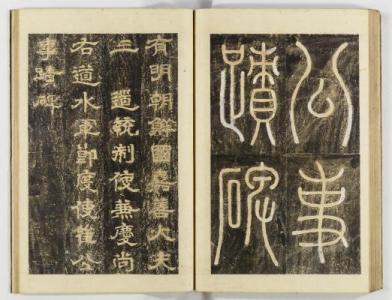 公事
蹟碑
有明朝鮮國嘉善大夫
三道統制使兼慶尚
右道水軍節度使崔公
事蹟碑